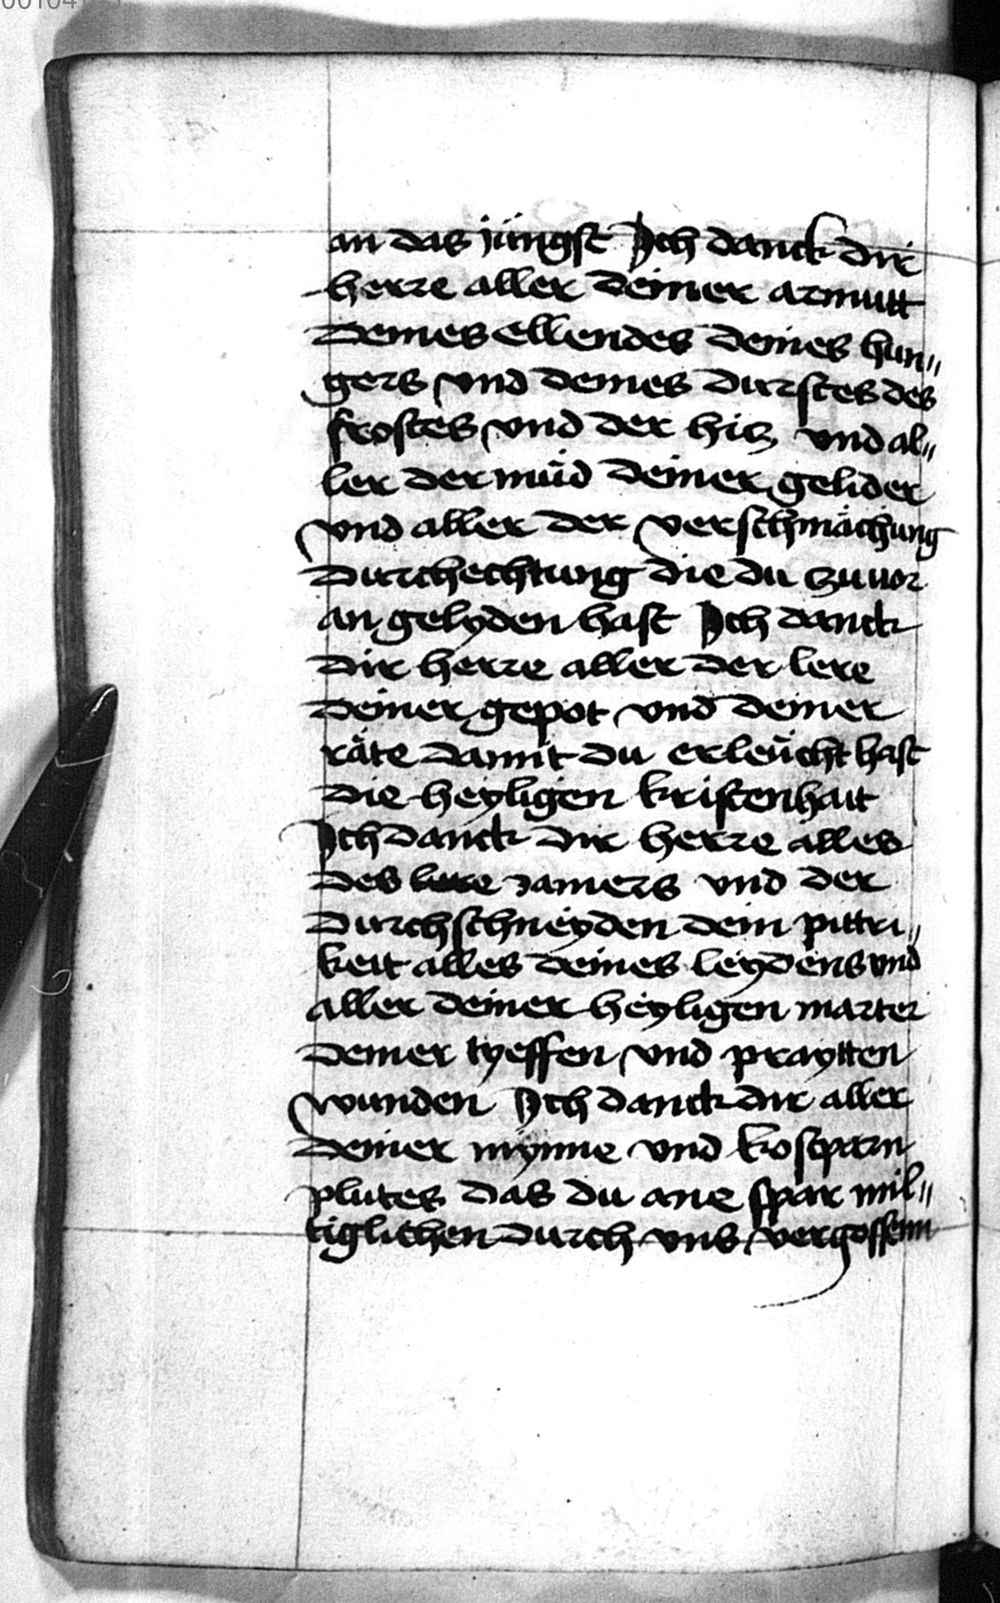 an das jüngst Ich danck dir
herre aller deiner armutt
deines ellendes deines hun„
gers vnd deines durstes des
frostes vnd der hicz vnd al„
ler der müd deiner gelider
vnd aller der verschmächung
durchechtung die du zuuor
an gelyden hast Ich danck
dir herre aller der lere
deiner gepot vnd deiner
räte damit du erleücht hast
die heyligen kristenhait
Ich danck dir herre alles
des jamers vnd der
durchschneyden dein pittri„
keit alles deines leydens vnd
aller deiner heyligen marter
deiner tyeffen vnd praytten
wunden Ich danck dir aller
deiner mynne vnd kosparn
plutes das du ane spar mil„
tiglichen durch vns vergossenn